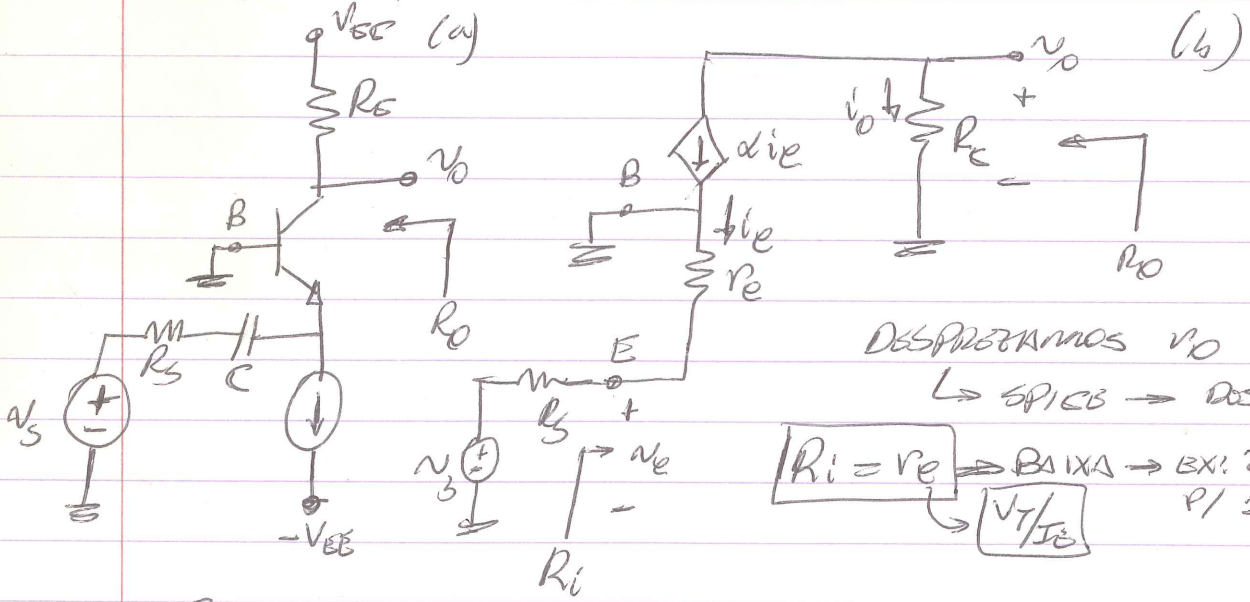 VEE (a)
RE
vo
B
Ro
Rs
C
vs
-VEE
vo (b)
+
io
Rc
-
Ro
αie
B
ie
re
E
Rs
+
vs
ve
-
Ri
DESPREZAMOS ro
↳ SPICE →
Ri = re → BAIXA → EX:
P/
VT/IE